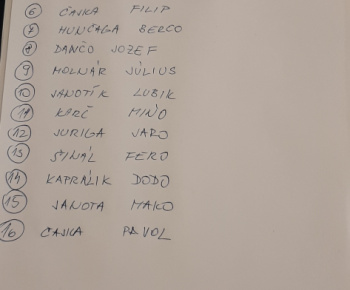 6 ČAJKA FILIP
7 HUNČAGA BERCO
8 DANČO JOZEF
9 MOLNÁR JÚLIUS
10 JANOTÍK LUBIK
11 KARČ MIŇO
12 JURIGA JARO
13 ŠINÁL FERO
14 KAPRÁLIK DODO
15 JANOTA MAKO
16 ČAJKA PAVOL